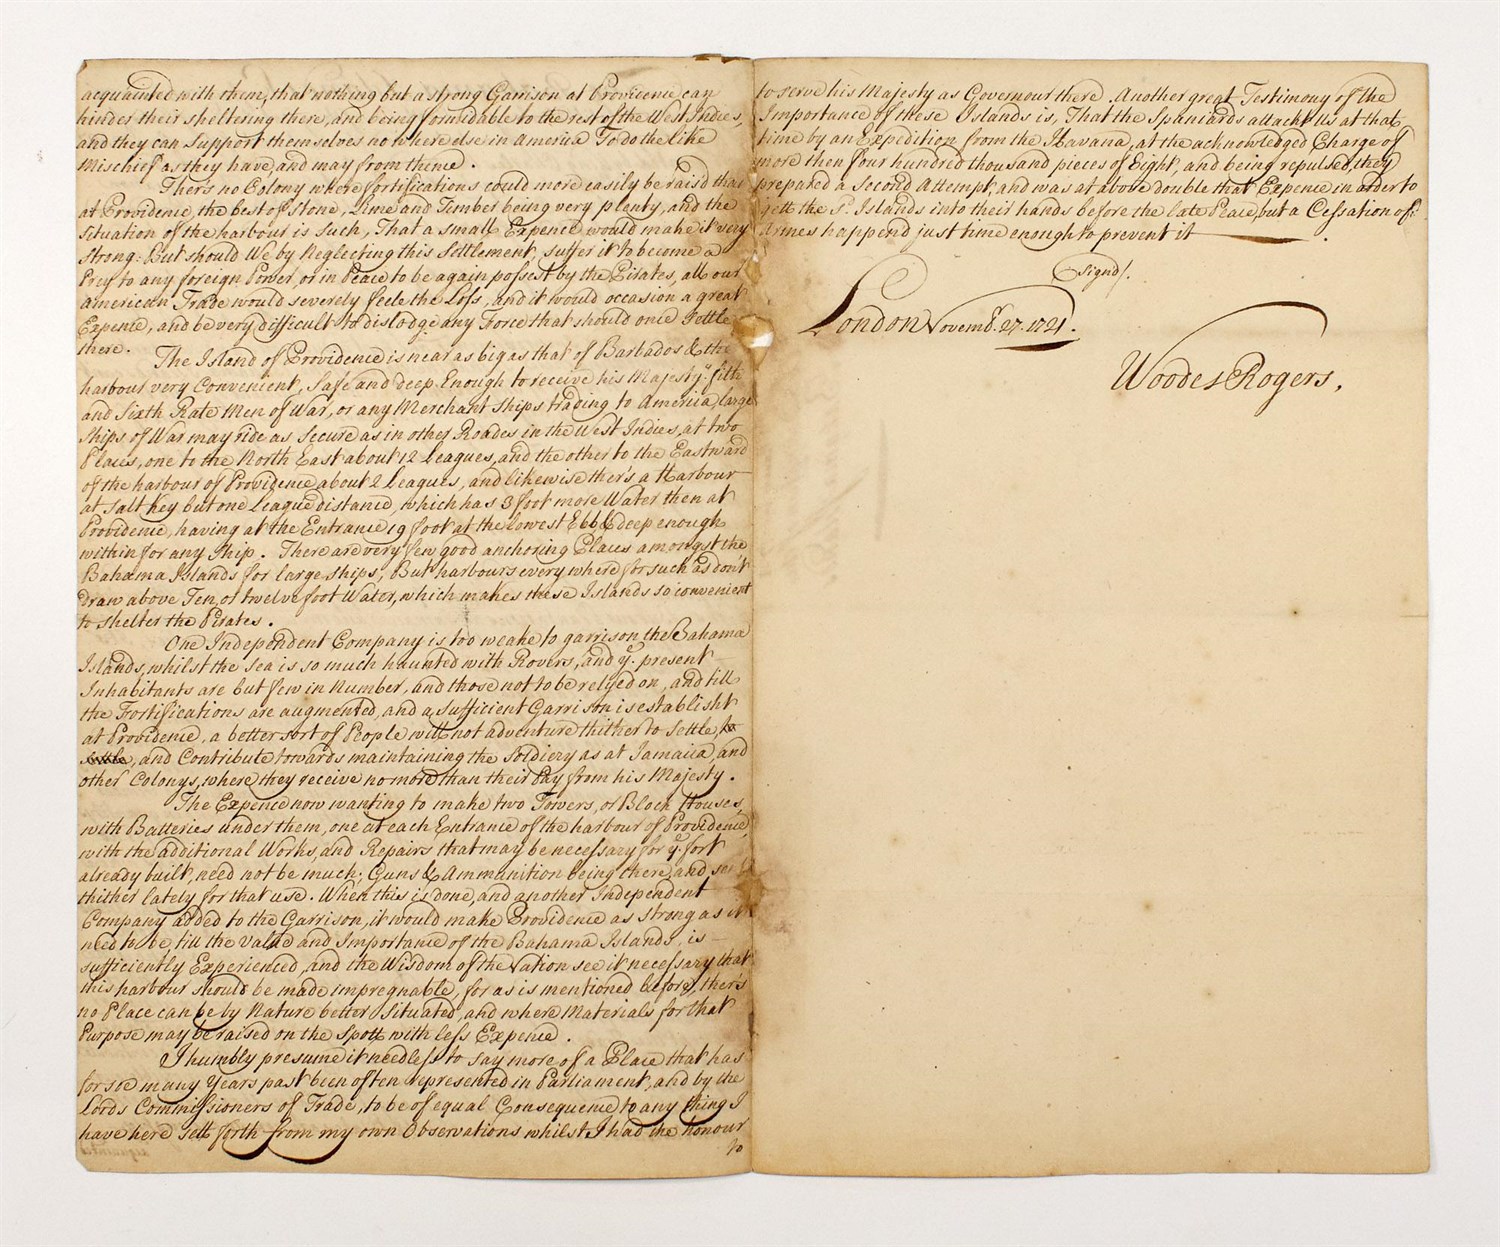 acquainted with them, that nothing but a strong Garrison at Providence can
hinder their sheltering there, and being formidable to the rest of the West Indies,
and they can Support themselves no where else in America To do the like
Mischief as they have, and may from thence.
Ther's no Colony where fortifications could more easily be raisd than
at Providence, the best of Stone, Lime and Timber being very plenty, and the
Situation of the harbour is such, That a small Expence would make it very
strong. But should We by Neglecting this Settlement, suffer it to become a
Prey to any foreign Power, or in Peace to be again possest by the Pirates, all our
American Trade would severely feele the Loss, and it would occasion a great
Expence, and be very difficult to dislodge any Force that should once Settle
there.
The Island of Providence is near as big as that of Barbados & the
harbour very Convenient, Safe and deep Enough to receive his Majestys fifth
and Sixth Rate Men of War, or any Merchant Ships trading to America, large
Ships of War may ride as Secure as in other Roades in the West Indies, at two
Places, one to the North East about 12 Leagues, and the other to the Eastward
of the harbour of Providence about 2 Leagues, and likewise ther's a Harbour
at Salt key but one League distance, which has 3 foot more Water then at
Providence, having at the Entrance 19 foot at the lowest Ebb & deep enough
within for any Ship. There are very few good anchoring Places amongst the
Bahama Islands for large Ships, But harbours every where for such as don't
Draw above Ten, or twelve foot Water, which makes these Islands so convenient
to shelter the Pirates.
One Independent Company is too weake to garrison the Bahama
Islands, whilst the Sea is so much haunted with Rovers, and ye. present
Inhabitants are but few in Number, and those not to be relyed on, and till
the Fortifications are augmented, and a sufficient Garrison is establisht
at Providence, a better sort of People will not adventure thither to Settle, to
settle, and Contribute towards maintaining the Soldiery as at Jamaica, and
other Colonys, where they receive no more than their Pay from his Majesty.
The Expence now wanting to make two Towers, or Block Houses,
with Batteries under them, one at each Entrance of the harbour of Providence,
with the additional Works, and Repairs that may be necessary for ye. fort
already built, need not be much; Guns & Ammunition being there, and sent
thither lately for that use. When this is done, and another Independent
Company added to the Garrison, it would make Providence as strong as it
need to be, till the Value and Importance of the Bahama Islands, is
sufficiently Experienced, and the Wisdom of the Nation see it necessary that
this harbour should be made impregnable, for as is mentioned before, ther's
no Place can be by Nature better Situated, and where Materials for that
Purpose may be raised on the Spott with less Expence.
I humbly presume it needless to say more of a Place that has
for soe many Years past been often represented in Parliament, and by the
Lords Commissioners of Trade, to be of equal Consequence to any thing I
have here sett forth from my own Observations whilst I had the honour
to
to serve his Majesty as Governour there. Another great Testimony of the
Importance of these Islands is, That the Spaniards attackt Us at that
time by an Expedition from the Havana, at the acknowledged Charge of
more then four hundred thousand pieces of Eight, and being repulsed, they
prepared a Second Attempt, and was at above double that Expence in order to
gett the Sd. Islands into their hands before the late Peace, but a Cessation of
Armes happend just time enough to prevent it.
Signd/.
London Novembr. 27. 1721.
Woodes Rogers.